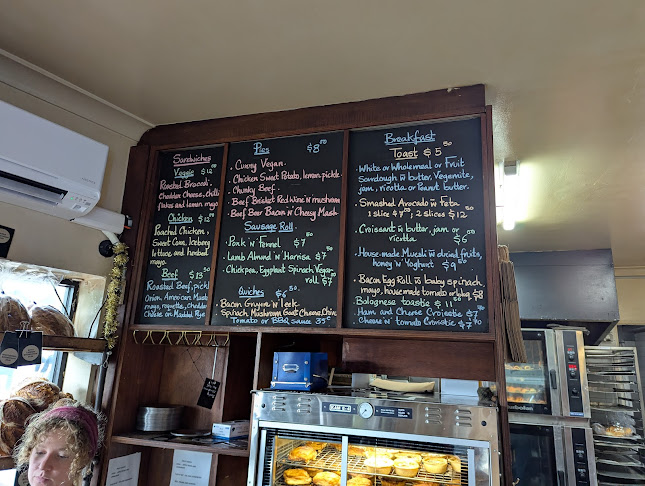 Sandwiches
Veggie $12
Roasted Broccoli,
Cheddar Cheese, Chilli
flakes and lemon mayo
Chicken $12
Poached Chicken,
Sweet Corn, Iceberg
lettuce and herbed
mayo.
Beef $13
Roasted Beef, Pickl
Onion, American Must
mayo, roquette, cheddar
Cheese
Pies $8
Curry Vegan.
Chicken Sweet Potato, lemon, pickle.
Chunky Beef.
Beef Brisket Red Wine 'n' mushroom
Beef Beer Bacon 'n' Cheesy Mash
Sausage Roll.
Pork 'n' Fennel $7
Lamb Almond 'n' Harrisa $7
Chickpea, Eggplant Spinach Vegan
roll $7
Quiches $6.50
Bacon Gruyere 'n' leek.
Spinach Mushroom Goat Cheese, Chive
Tomato or BBQ sauce
Breakfast
Toast $5.50
White or Wholemeal or Fruit
Sourdough w butter. Vegemite,
jam, ricotta or Peanut butter.
Smashed Avocado w Feta
1 slice $7 2 slices $12.50
Croissant w butter, jam or
ricotta $6
House-made Muesli w dried fruits,
honey 'n' Yoghurt $9.50
Bacon Egg Roll w baby spinach,
mayo, housemade tomato or bbq $8
Bolognese toastie $11
Ham and Cheese Croistie $7
Cheese 'n' tomato Croistie $7
RYE